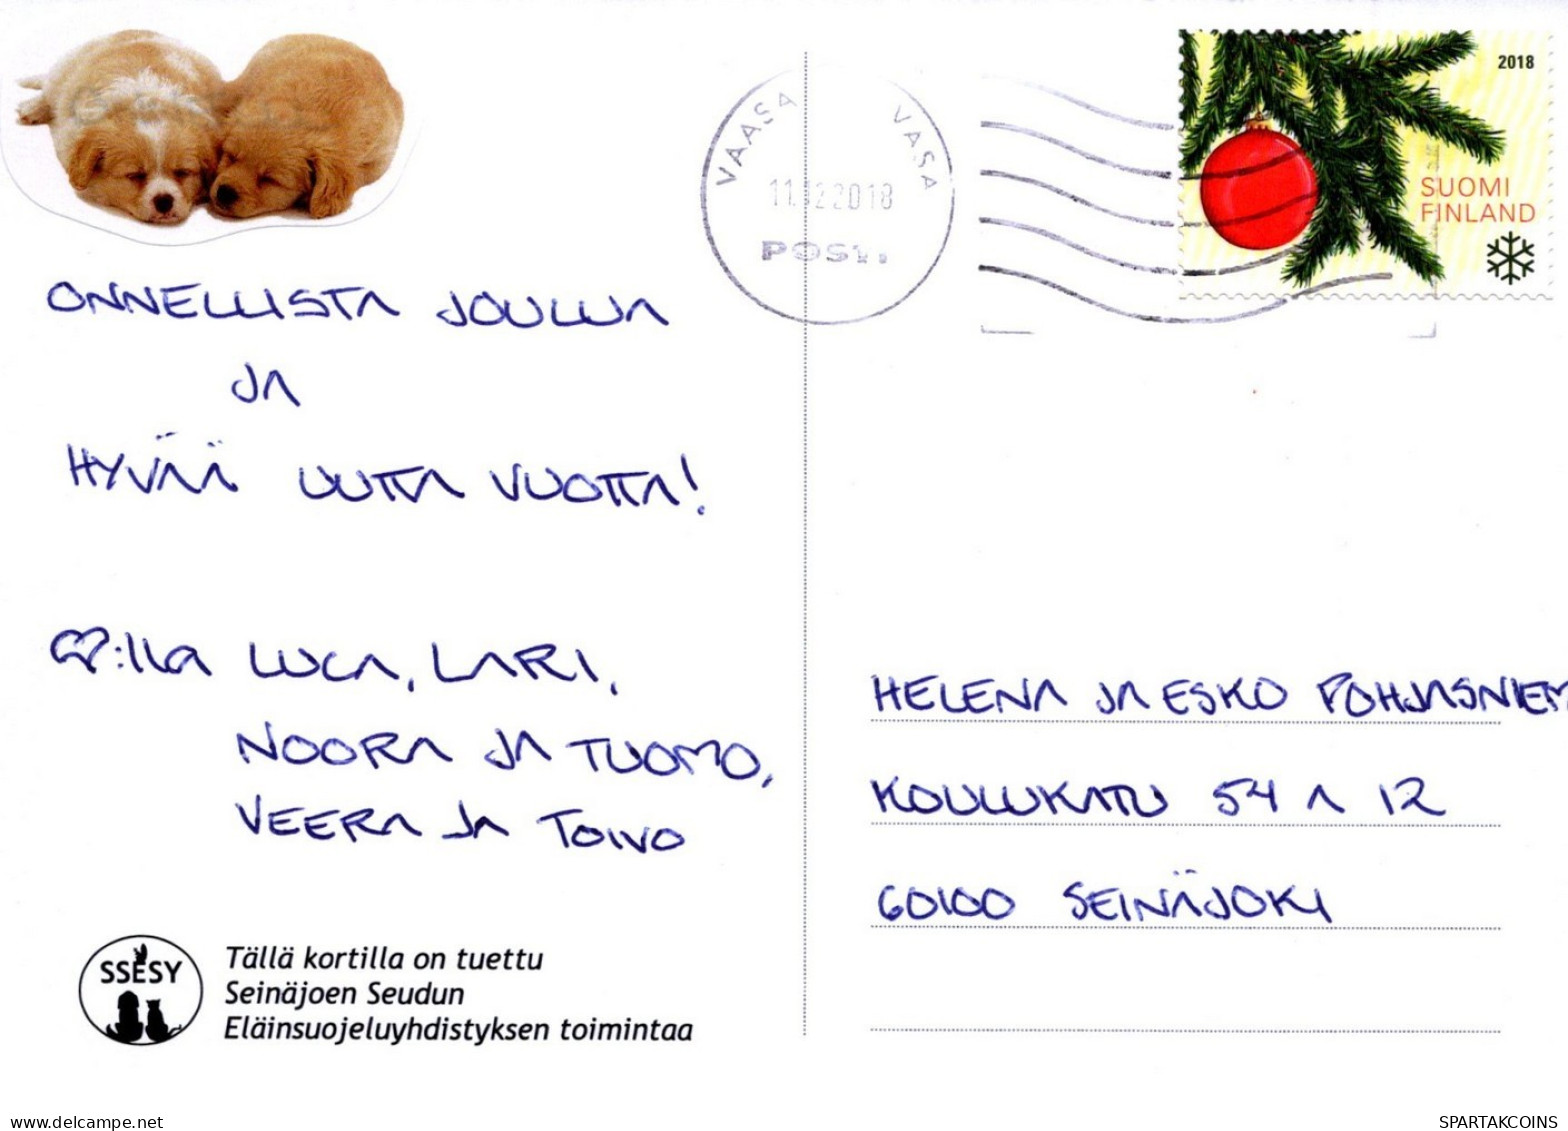 VAASA VASA
11.12.2018
POSTI
2018
SUOMI
FINLAND
ONNELLISTA JOULUA
JA
HYVÄÄ UUTTA VUOTTA!
♡:lla LUCA, LARI,
NOORA JA TUOMO,
VEERA JA TOIVO
HELENA JA ESKO POHJASNIEM
KOULUKATU 54 A 12
60100 SEINÄJOKI
SSESY
Tällä kortilla on tuettu
Seinäjoen Seudun
Eläinsuojeluyhdistyksen toimintaa
www.delcampe.net
SPARTAKCOINS